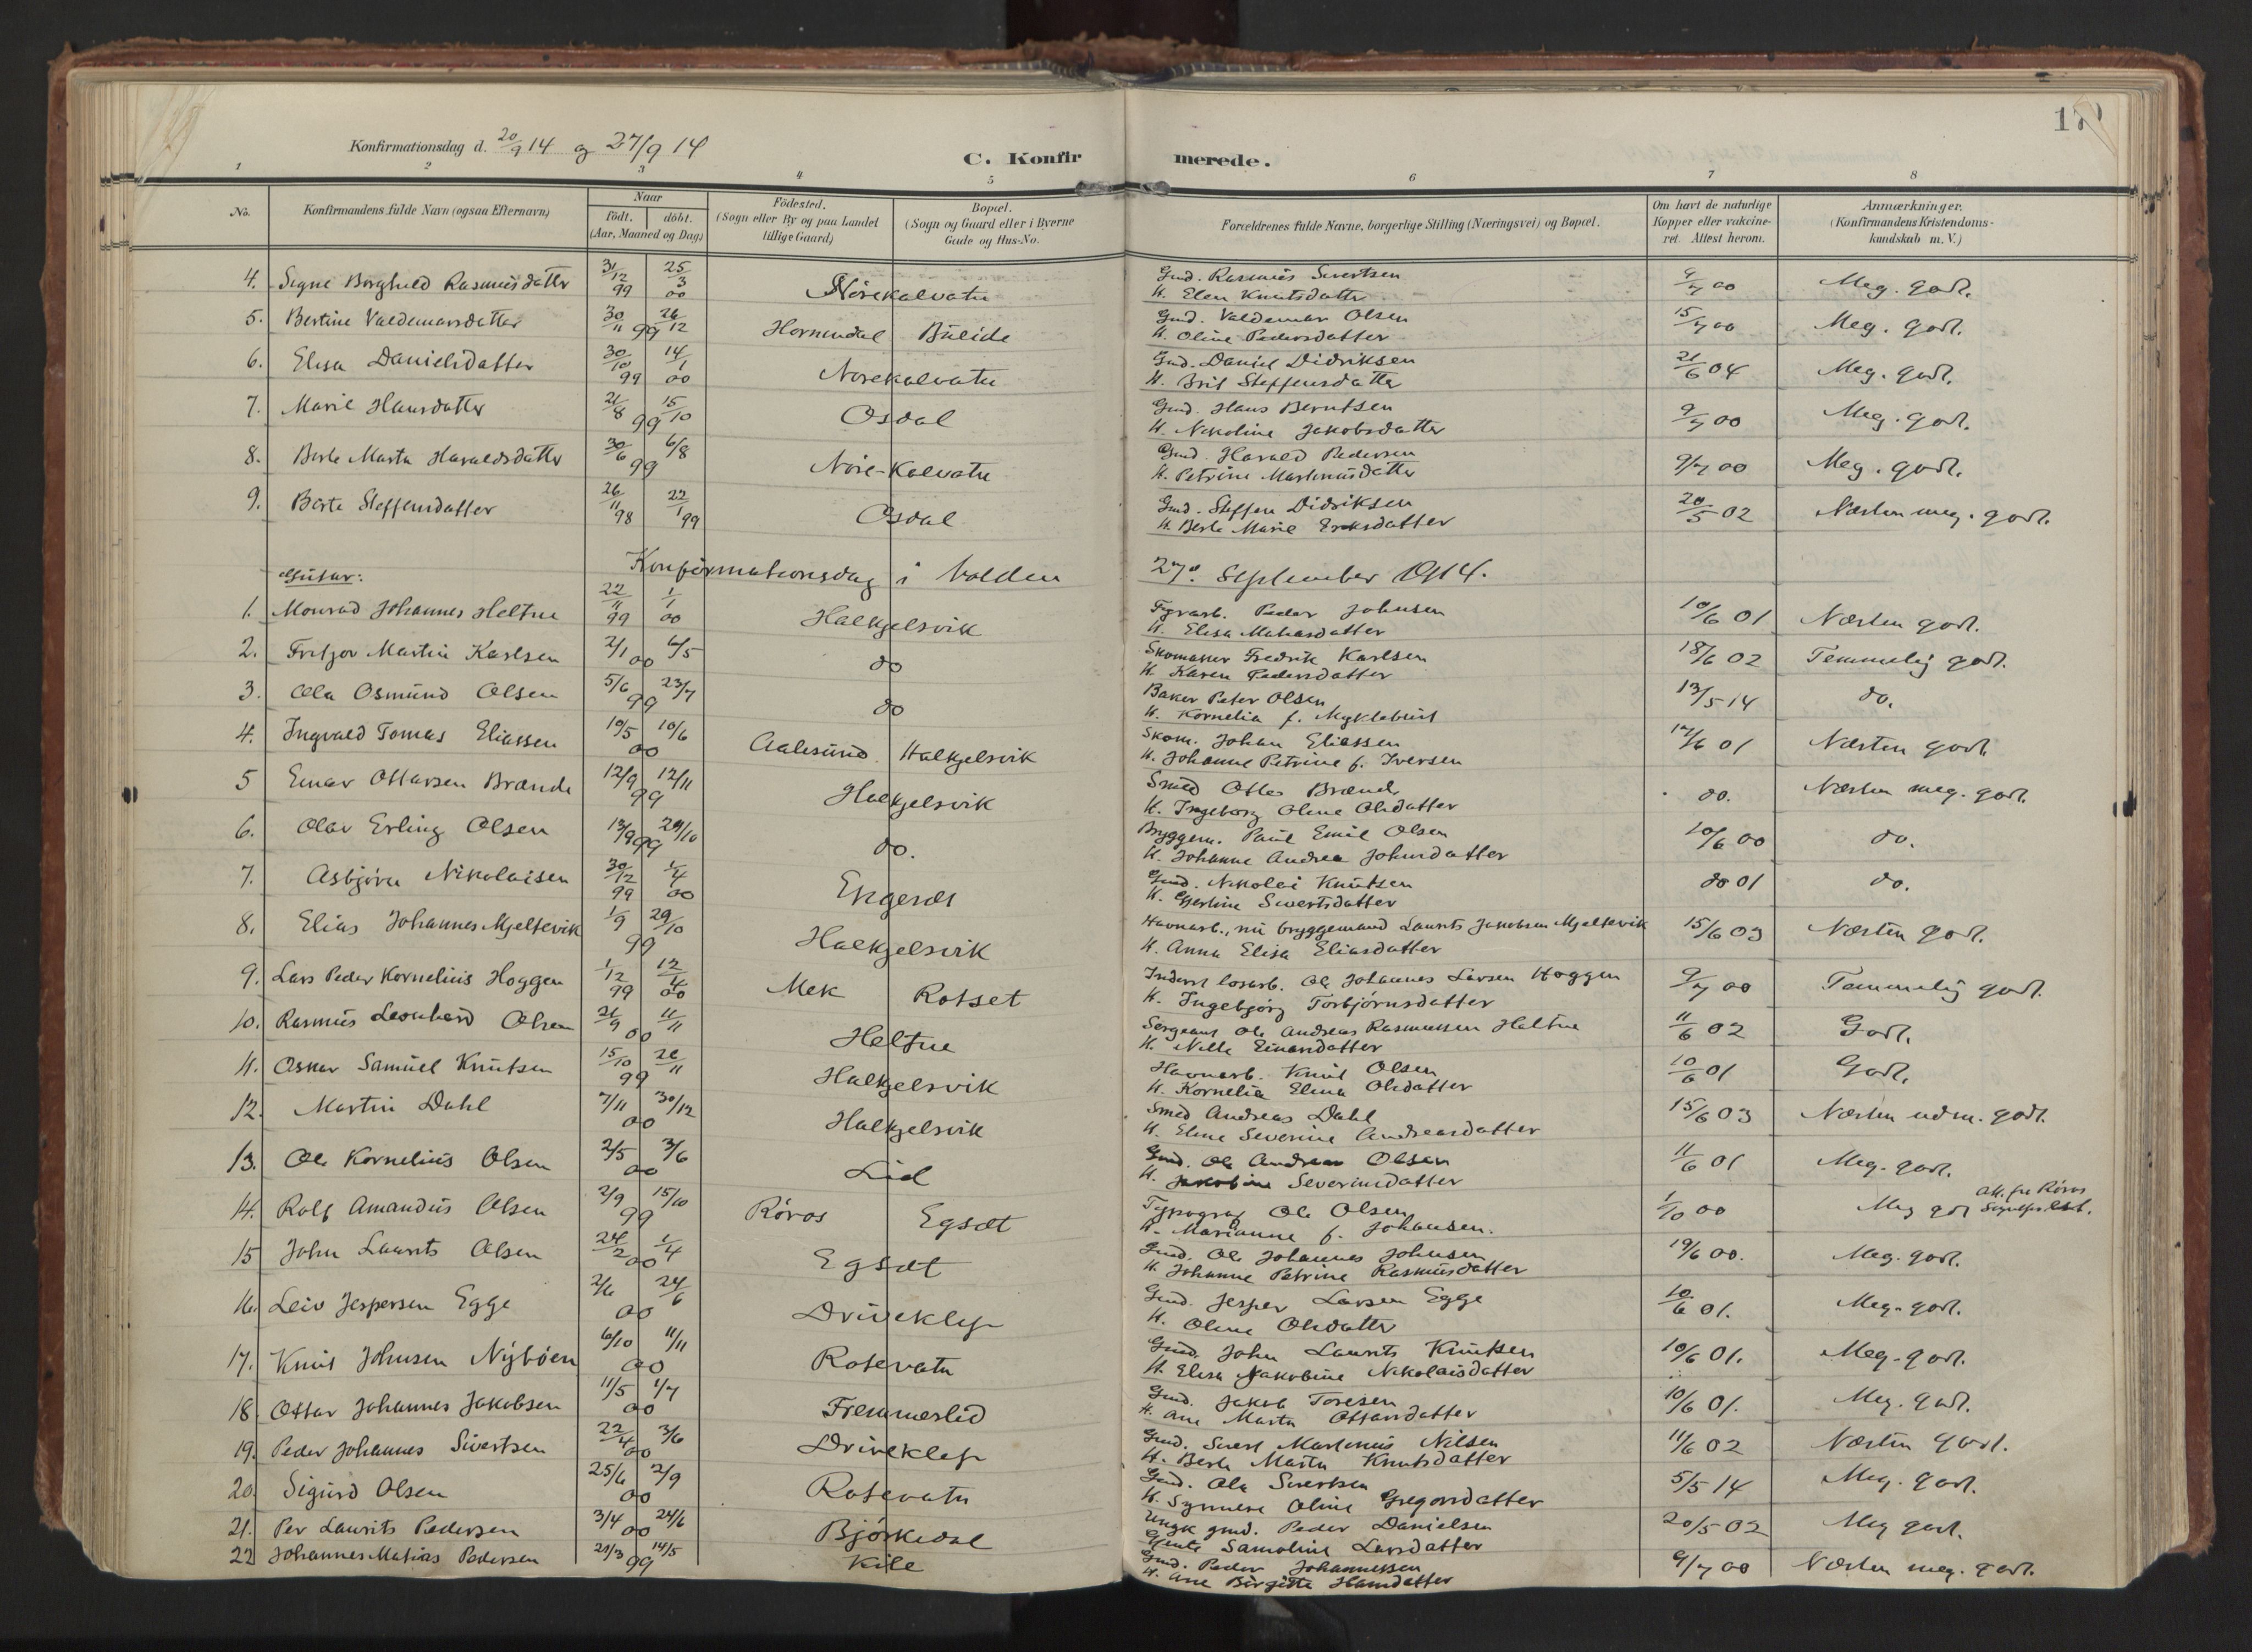 Konfirmationsdag d. 20/9 14 og 27/9 14
C. Konfirmerede.
1 2 3 4 5 6 7 8
No. | Konfirmandens fulde Navn (ogsaa Efternavn) | Naar födt. döbt. (Aar, Maaned og Dag) | Födested. (Sogn eller By og paa Landet tillige Gaard) | Bopæl. (Sogn og Gaard eller i Byerne Gade og Hus-No. | Forældrenes fulde Navne, borgerlige Stilling (Næringsvei) og Bopæl. | Om havt de naturlige Kopper eller vakcineret. Attest herom. | Anmærkninger. (Konfirmandens Kristendomskundskab m. V.)
4. Signe Borghild Rasmusdatter 31/12 99 25/3 00 Nörekalvatn Gmd. Rasmus Sivertsen 9/7 00 Meg. godt.
H. Elen Knutsdatter
5. Bertine Valdemarsdatter 30/11 99 26/12 Hornindal Gmd. Valdemar Olsen 15/7 00 Meg. godt.
H. Oline Pedersdatter
6. Elisa Danielsdatter 30/10 99 14/1 00 Norekalvatn Gmd. Daniel Didriksen 21/6 04 Meg. godt.
H. Brit Steffensdatter
7. Marie Hansdatter 21/8 99 15/10 Osdal Gmd. Hans Berntsen 9/7 00 Meg. godt.
H. Nikoline Jakobsdatter
8. Berte Marta Haraldsdatter 30/6 99 6/8 Nore-Kalvatn Gmd. Harald Pedersen 9/7 00 Meg. godt.
H. Petrine Martinusdatter
9. Berte Steffensdatter 26/11 98 22/1 99 Osdal Gmd. Steffen Didriksen 20/5 02 Næsten meg. godt.
H. Berte Marie Eriksdatter
Konfirmationsdag i Volden 27de September 1914.
Gutar:
1. Monrad Johannes Heltne 22/11 99 1/1 00 Halkjelsvik Peder Johnsen 10/6 01 Næsten godt.
H. Elisa Matiasdatter
2. Fritjov Martin Karlsen 2/1 00 6/5 do Skomaker Fredrik Karlsen 18/6 02 Temmelig godt.
H. Karen Pedersdatter
3. Ola Osmund Olsen 5/6 99 23/7 do Baker Peter Olsen 13/5 14 do.
H. Kornelia f. Myklebust
4. Ingvald Tomas Eliassen 10/5 00 10/6 Aalesund. Halkjelsvik Skom. Johan Eliassen 17/6 01 Næsten godt
H. Johanne Petrine f. Iversen
5 Einar Ottarsen Brænde 12/9 99 12/11 Halkjelsvik Smed Otter Brænde do. Næsten meg. godt.
H. Ingeborg Oline Olsdatter
6. Olav Erling Olsen 13/9 99 29/10 do. Bryggem. Paul Emil Olsen 10/6 00 do.
H. Johanne Andrea Johnsdatter
7. Asbjörn Nikolaisen 30/12 99 1/4 00 Gmd. Nikolai Knutsen do 01 do.
H. Gjertine Sivertsdatter
8. Elias Johannes Mjeltevik 1/9 99 29/10 Halkjelsvik Havnarb., nu bryggemand Laurits Jakobsen Mjeltevik 15/6 03 Næsten godt.
H. Anna Elisa Eliasdatter
9. Lars Peder Kornelius Hoggen 1/12 99 12/4 00 Mek Rotset Inderst losarb. Ole Johannes Larsen Hoggen 9/7 00 Temmelig godt.
H. Ingebjörg Torbjörnsdatter
10. Rasmus Leonhard Olsen 21/9 00 11/11 Heltne Sergeant Ole Andreas Rasmussen Heltne 11/6 02 Godt.
H. Nille Einarsdatter
11. Oskar Samuel Knutsen 15/10 99 26/11 Halkjelsvik Havnarb. Knut Olsen 10/6 01 Godt.
H. Kornelia Elina Olsdatter
12. Martin Dahl 7/11 00 30/12 Halkjelsvik Smed Andreas Dahl 15/6 03 Næsten udm. godt.
H. Eline Severine Andreasdatter
13. Ole Kornelius Olsen 2/5 00 3/6 Lid Gmd. Ole Andreas Olsen 11/6 01 Meg. godt.
H. Jakobine Severinsdatter
14. Rolf Amandus Olsen 2/9 99 15/10 Röros Egset Typograf Ole Olsen 1/10 00 Meg godt Att. fra Röros
H. Marianne f. Johansen.
15 John Laurits Olsen 24/2 00 1/4 Egset Gmd. Ole Johannes Johnsen 19/6 00. Meg. godt.
H. Johanne Petrine Rasmusdatter
16. Leiv Jespersen Egge 2/6 00 24/6 Driveklep Gmd. Jesper Larsen Egge 10/6 01. Meg. godt.
H. Oline Olsdatter
17. Knut Johnsen Nyböen 6/10 00 11/11 Rotevatn Gmd. John Laurits Knutsen 10/6 01. Meg. godt.
H. Elisa Jakobine Nikolaisdatter
18. Ottar Johannes Jakobsen 11/5 00 1/7 Fremmerlid Gmd. Jakob Toresen 10/6 01. Meg. godt.
H. Ane Marta Ottarsdatter
19. Peder Johannes Sivertsen 22/4 00 3/6 Driveklep Gmd. Sivert Martinus Nilsen 11/6 02 Næsten godt.
H. Berte Marta Knutsdatter
20. Sigurd Olsen 25/6 00 2/9 Rotevatn Gmd. Ole Sivertsen 5/5 14 Meg. godt.
H. Synneve Oline Gregoriusdatter
21. Per Laurits Pedersen 3/4 00 24/6 Björkedal Ungk gmd. Peder Danielsen 20/5 02 Meg godt.
Gjente Samoline Larsdatter
22 Johannes Matias Pedersen 21/3 99 14/5 Kile Gmd. Peder Johannessen 9/7 00 Næsten meg. godt.
H. Ane Birgitte Hansdatter